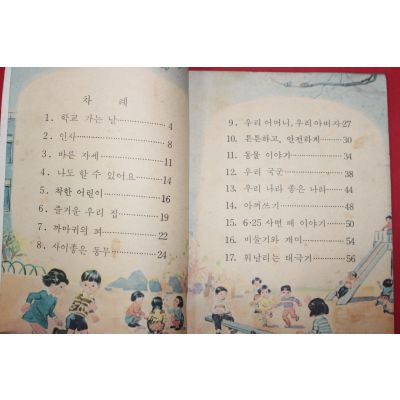 차 례
1. 학교 가는 날 ⋯⋯ 4
2. 인사 ⋯⋯ 8
3. 바른 자세 ⋯⋯ 11
4. 나도 할 수 있어요 ⋯⋯ 14
5. 착한 어린이 ⋯⋯ 16
6. 즐거운 우리 집 ⋯⋯ 19
7. 까마귀의 꾀 ⋯⋯ 22
8. 사이좋은 동무 ⋯⋯ 24
9. 우리 어머니, 우리 아버지 27
10. 튼튼하고, 안전하게 ⋯⋯ 30
11. 동물 이야기 ⋯⋯ 34
12. 우리 국군 ⋯⋯ 38
13. 우리 나라 좋은 나라 ⋯⋯ 44
14. 아껴쓰기 ⋯⋯ 48
15. 6·25 사변 때 이야기 ⋯⋯ 50
16. 비둘기와 개미 ⋯⋯ 54
17. 휘날리는 태극기 ⋯⋯ 56